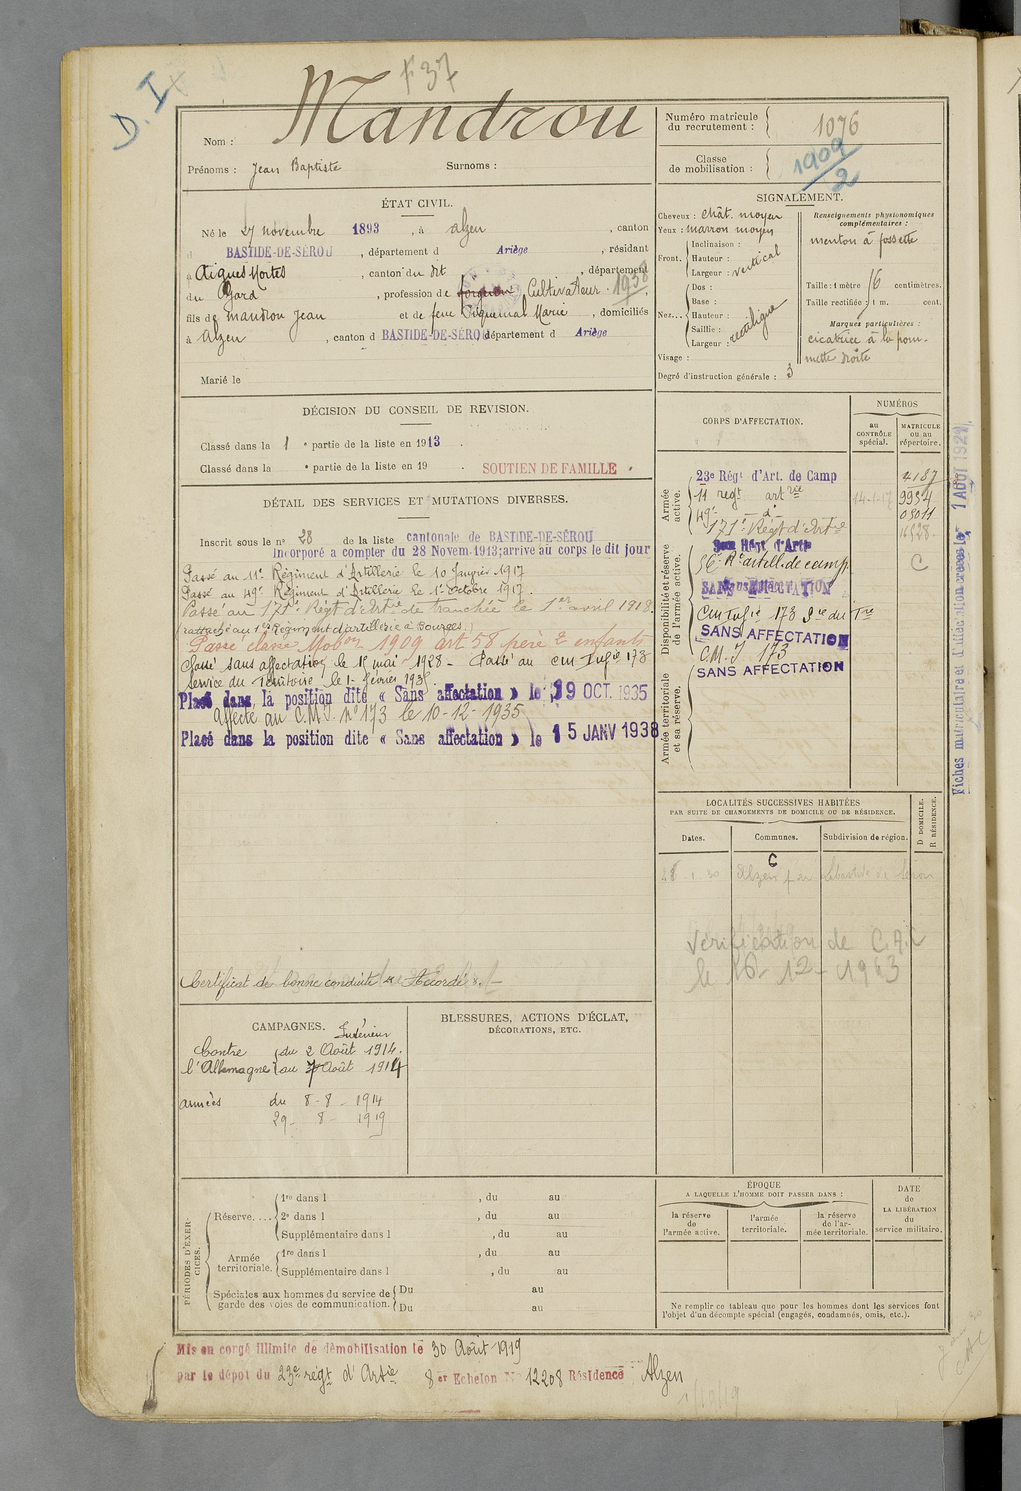 D. I
F 37
Nom : Mandrou
Prénoms : Jean Baptiste Surnoms :
Numéro matricule du recrutement : 1076
Classe de mobilisation : 1909/2
ÉTAT CIVIL.
Né le 27 novembre 1893, à Alzen, canton
d BASTIDE-DE-SÉROU, département d Ariège, résidant
à Aigues Mortes, canton du dit, département
du Gard, profession de forgeron Cultivateur 1938,
fils de Mandrou Jean et de feue Piquemal Marie, domiciliés
à Alzen, canton d BASTIDE-DE-SÉROU, département d Ariège
Marié le
SIGNALEMENT.
Cheveux : chât. moyen
Yeux : marron moyen
Front. Inclinaison :
Hauteur :
Largeur :
vertical
Nez... Dos :
Base :
Hauteur :
Saillie :
Largeur :
rectiligne
Visage :
Degré d'instruction générale : 3
Renseignements physionomiques complémentaires :
menton à fossette
Taille : 1 mètre 76 centimètres.
Taille rectifiée : 1 m. cent.
Marques particulières :
cicatrice à la pom-
mette droite
DÉCISION DU CONSEIL DE REVISION.
Classé dans la 1 e partie de la liste en 1913.
Classé dans la e partie de la liste en 19 . SOUTIEN DE FAMILLE.
DÉTAIL DES SERVICES ET MUTATIONS DIVERSES.
Inscrit sous le n° 28 de la liste cantonale de BASTIDE-DE-SÉROU
Incorporé a compter du 28 Novem. 1913; arrive au corps le dit jour
Passé au 11e Régiment d'Artillerie le 10 Janvier 1917
Passé au 49e Régiment d'Artillerie le 1er Octobre 1917.
Passé au 171e Régt d'Artie de tranchée le 1er avril 1918.
(rattaché au 1er Régiment d'artillerie à Bourges)
Passé classe Mobon 1909 art 58 père 2 enfants
Classé sans affectation le 15 mai 1928 - Passé au cm Infie 173
Service du Territoire le 1er février 193
Placé dans la position dite « Sans affectation » le 19 OCT. 1935
Affecté au C.M.I. n° 173 le 10-12-1935
Placé dans la position dite « Sans affectation » le 15 JANV 1938
Certificat de bonne conduite « Accordé ».
CORPS D'AFFECTATION.
NUMÉROS
au CONTRÔLE spécial.
MATRICULE ou au répertoire.
Armée active.
23e Régt d'Art. de Camp 4187
11 regt artie 14-1-17 9954
49e - d° - 05011
171e Régt d'Artie 16928
Disponibilité et réserve de l'armée active.
56e Rt artill. de camp. C
SANS AFFECTATION
Cm Infie 173 Sce du Tre
SANS AFFECTATION
C.M.I 173
SANS AFFECTATION
Armée territoriale et sa réserve.
Fiches matriculaire et d'affectation créées le 1 AOUT 1921
LOCALITÉS SUCCESSIVES HABITÉES
PAR SUITE DE CHANGEMENTS DE DOMICILE OU DE RÉSIDENCE.
Dates. Communes. Subdivision de région. D DOMICILE. R RÉSIDENCE.
C
1.30 Alzen Labastide de Serou
Vérification de C.A.C
le 16-12-1963
CAMPAGNES.
Intérieur
Contre l'Allemagne du 2 Août 1914.
au 7 Août 1914
armées du 8-8-1914
29-8-1919
BLESSURES, ACTIONS D'ÉCLAT,
DÉCORATIONS, ETC.
PÉRIODES D'EXERCICES.
Réserve.... 1re dans l , du au
2e dans l , du au
Supplémentaire dans l , du au
Armée territoriale. 1re dans l , du au
Supplémentaire dans l , du au
Spéciales aux hommes du service de garde des voies de communication. Du au
Du au
ÉPOQUE
A LAQUELLE L'HOMME DOIT PASSER DANS :
la réserve de l'armée active.
l'armée territoriale.
la réserve de l'armée territoriale.
DATE de LA LIBÉRATION du service militaire.
Ne remplir ce tableau que pour les hommes dont les services font
l'objet d'un décompte spécial (engagés, condamnés, omis, etc.).
Mis en congé illimité de démobilisation le 30 Août 1919
par le dépôt du 23e regt d'Artie 8 er Echelon N° 12208 Résidence : Alzen